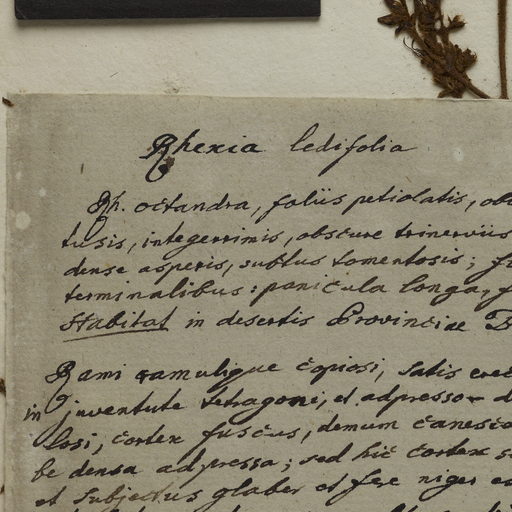 Rhexia ledifolia
Rh. octandra, foliis petiolatis, ob
tusis, integerrimis, obscure trinerviis
dense asperis, subtus tomentosis; f
terminalibus: panicula longa, f
Habitat in desertis Provinciae B
Rami ramulique copiosi, satis erec
in juventute tetragoni, et adpresso- d
losi, cortex fuscus, demum canesc
be densa adpressa; sed hic cortex s
et subjectus glaber et fere niger e